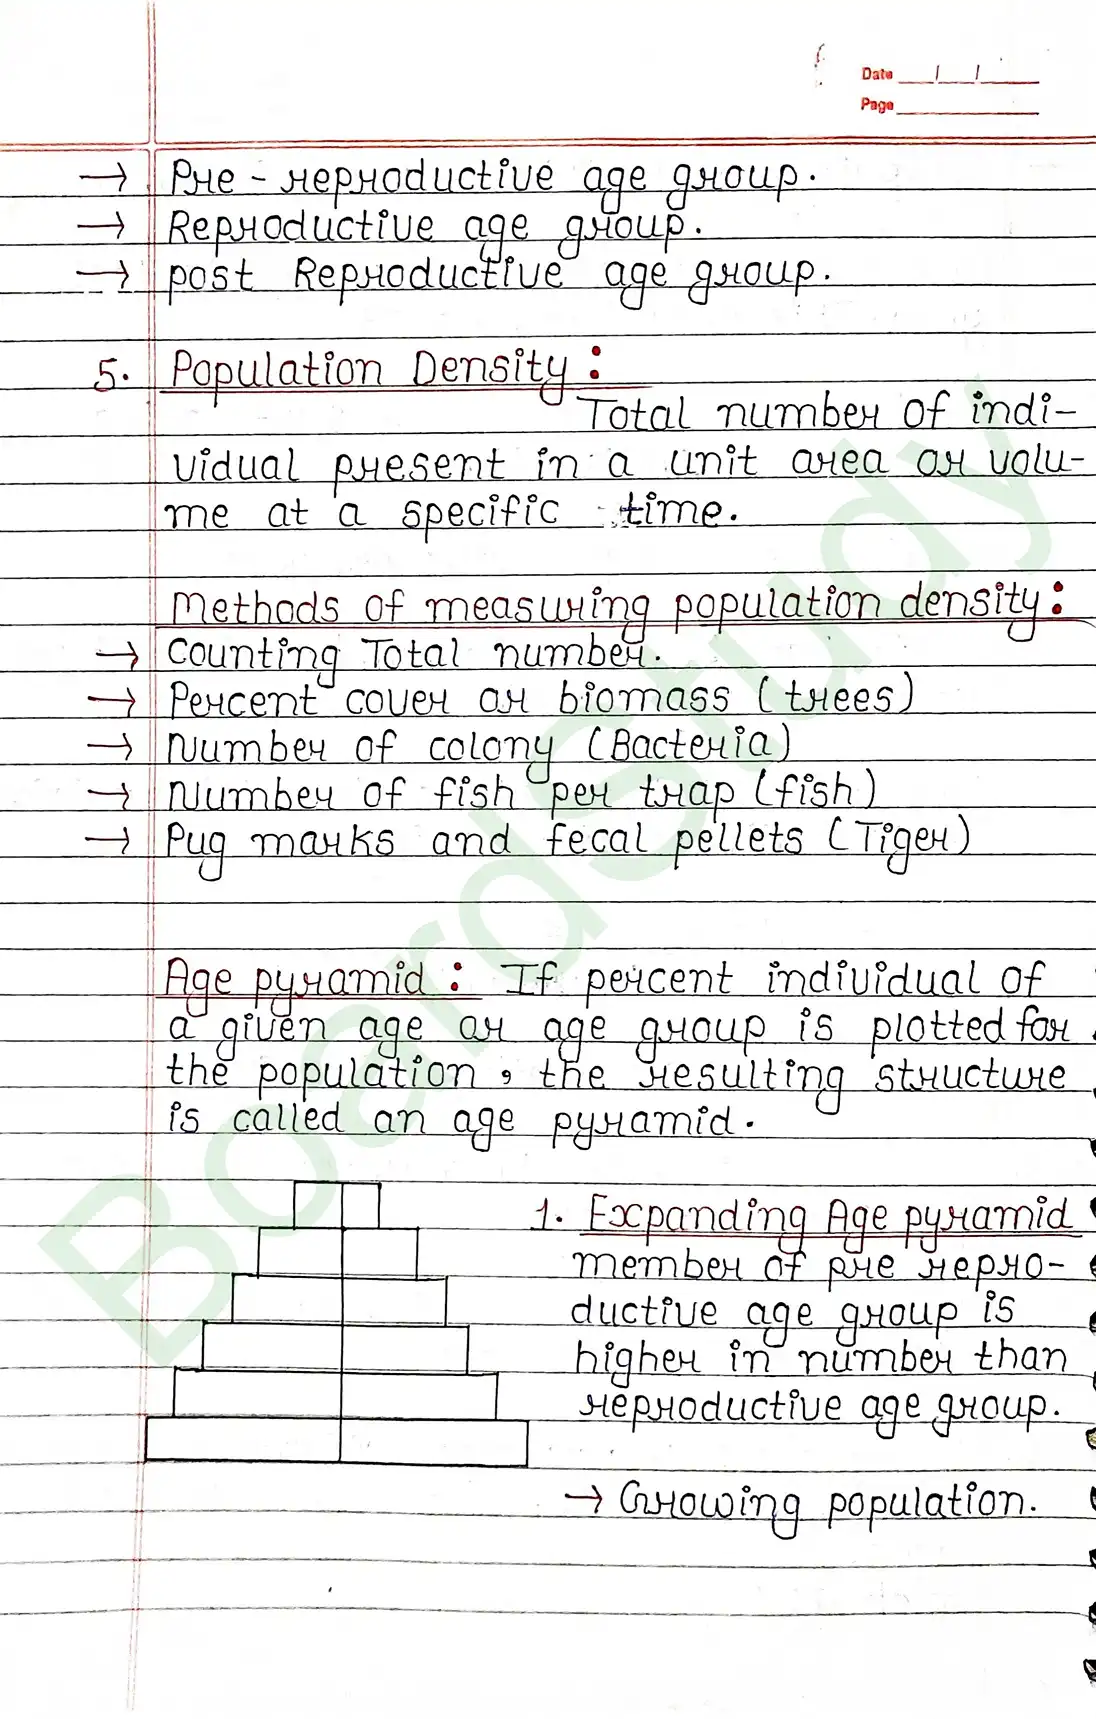 Date __/__/__
Page
→ Pre-reproductive age group.
→ Reproductive age group.
→ post Reproductive age group.
5. Population Density :
Total number of indi-
vidual present in a unit area or volu-
me at a specific time.
Methods of measuring population density :
→ Counting Total number.
→ Percent cover or biomass (trees)
→ Number of colony (Bacteria)
→ Number of fish per trap (fish)
→ Pug marks and fecal pellets (Tiger)
Age pyramid : If percent individual of
a given age or age group is plotted for
the population, the resulting structure
is called an age pyramid.
1. Expanding Age pyramid
member of pre repro-
ductive age group is
higher in number than
reproductive age group.
→ Growing population.
BoardStudy